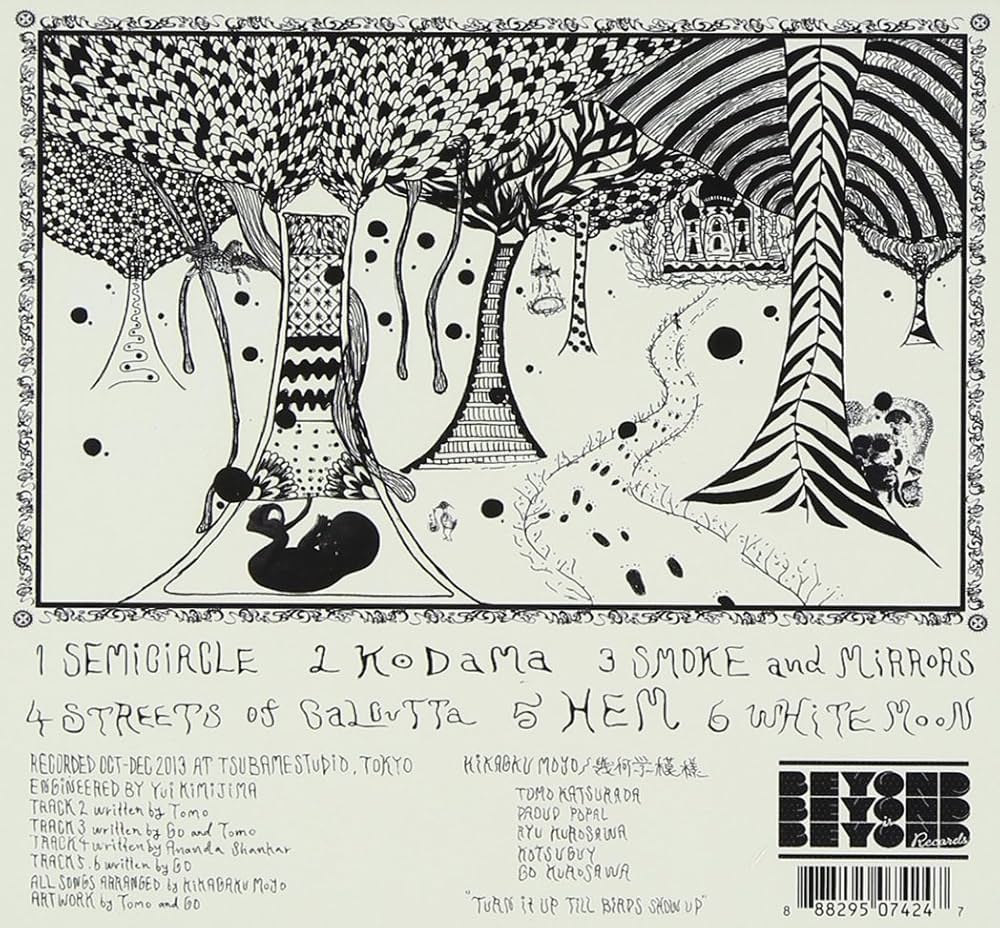 1 SEMICIRCLE 2 KODAMA 3 SMOKE and MIRRORS
4 STREETS of CALCUTTA 5 HEM 6 WHITE MOON
RECORDED OCT-DEC 2013 AT TSUBAMESTUDIO, TOKYO
ENGINEERED BY YUI KIMIJIMA
TRACK 2 written by Tomo
TRACK 3 written by Go and Tomo
TRACK 4 written by Ananda Shankar
TRACK 5.6 written by GO
ALL SONGS ARRANGED by KIKAGAKU MOYO
ARTWORK by Tomo and GO
KIKAGAKU MOYO/幾何学模様
TOMO KATSURADA
DAOUD POPAL
RYU KUROSAWA
KOTSUGUY
GO KUROSAWA
"TURN iT UP TILL BIRDS SHOW UP"
BEYOND
BEYOND
is
BEYOND
Records
8 88295 07424 7